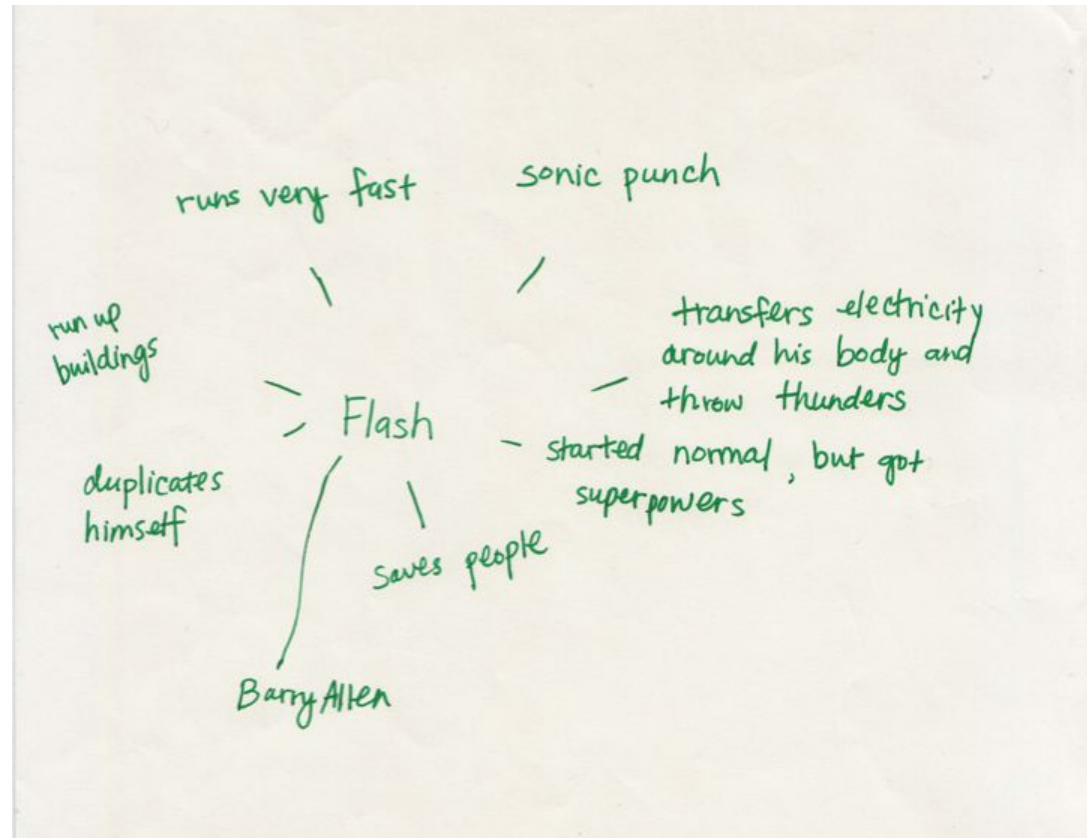 runs very fast
sonic punch
run up
buildings
transfers electricity
around his body and
throw thunders
Flash
started normal, but got
superpowers
duplicates
himself
saves people
Barry Allen